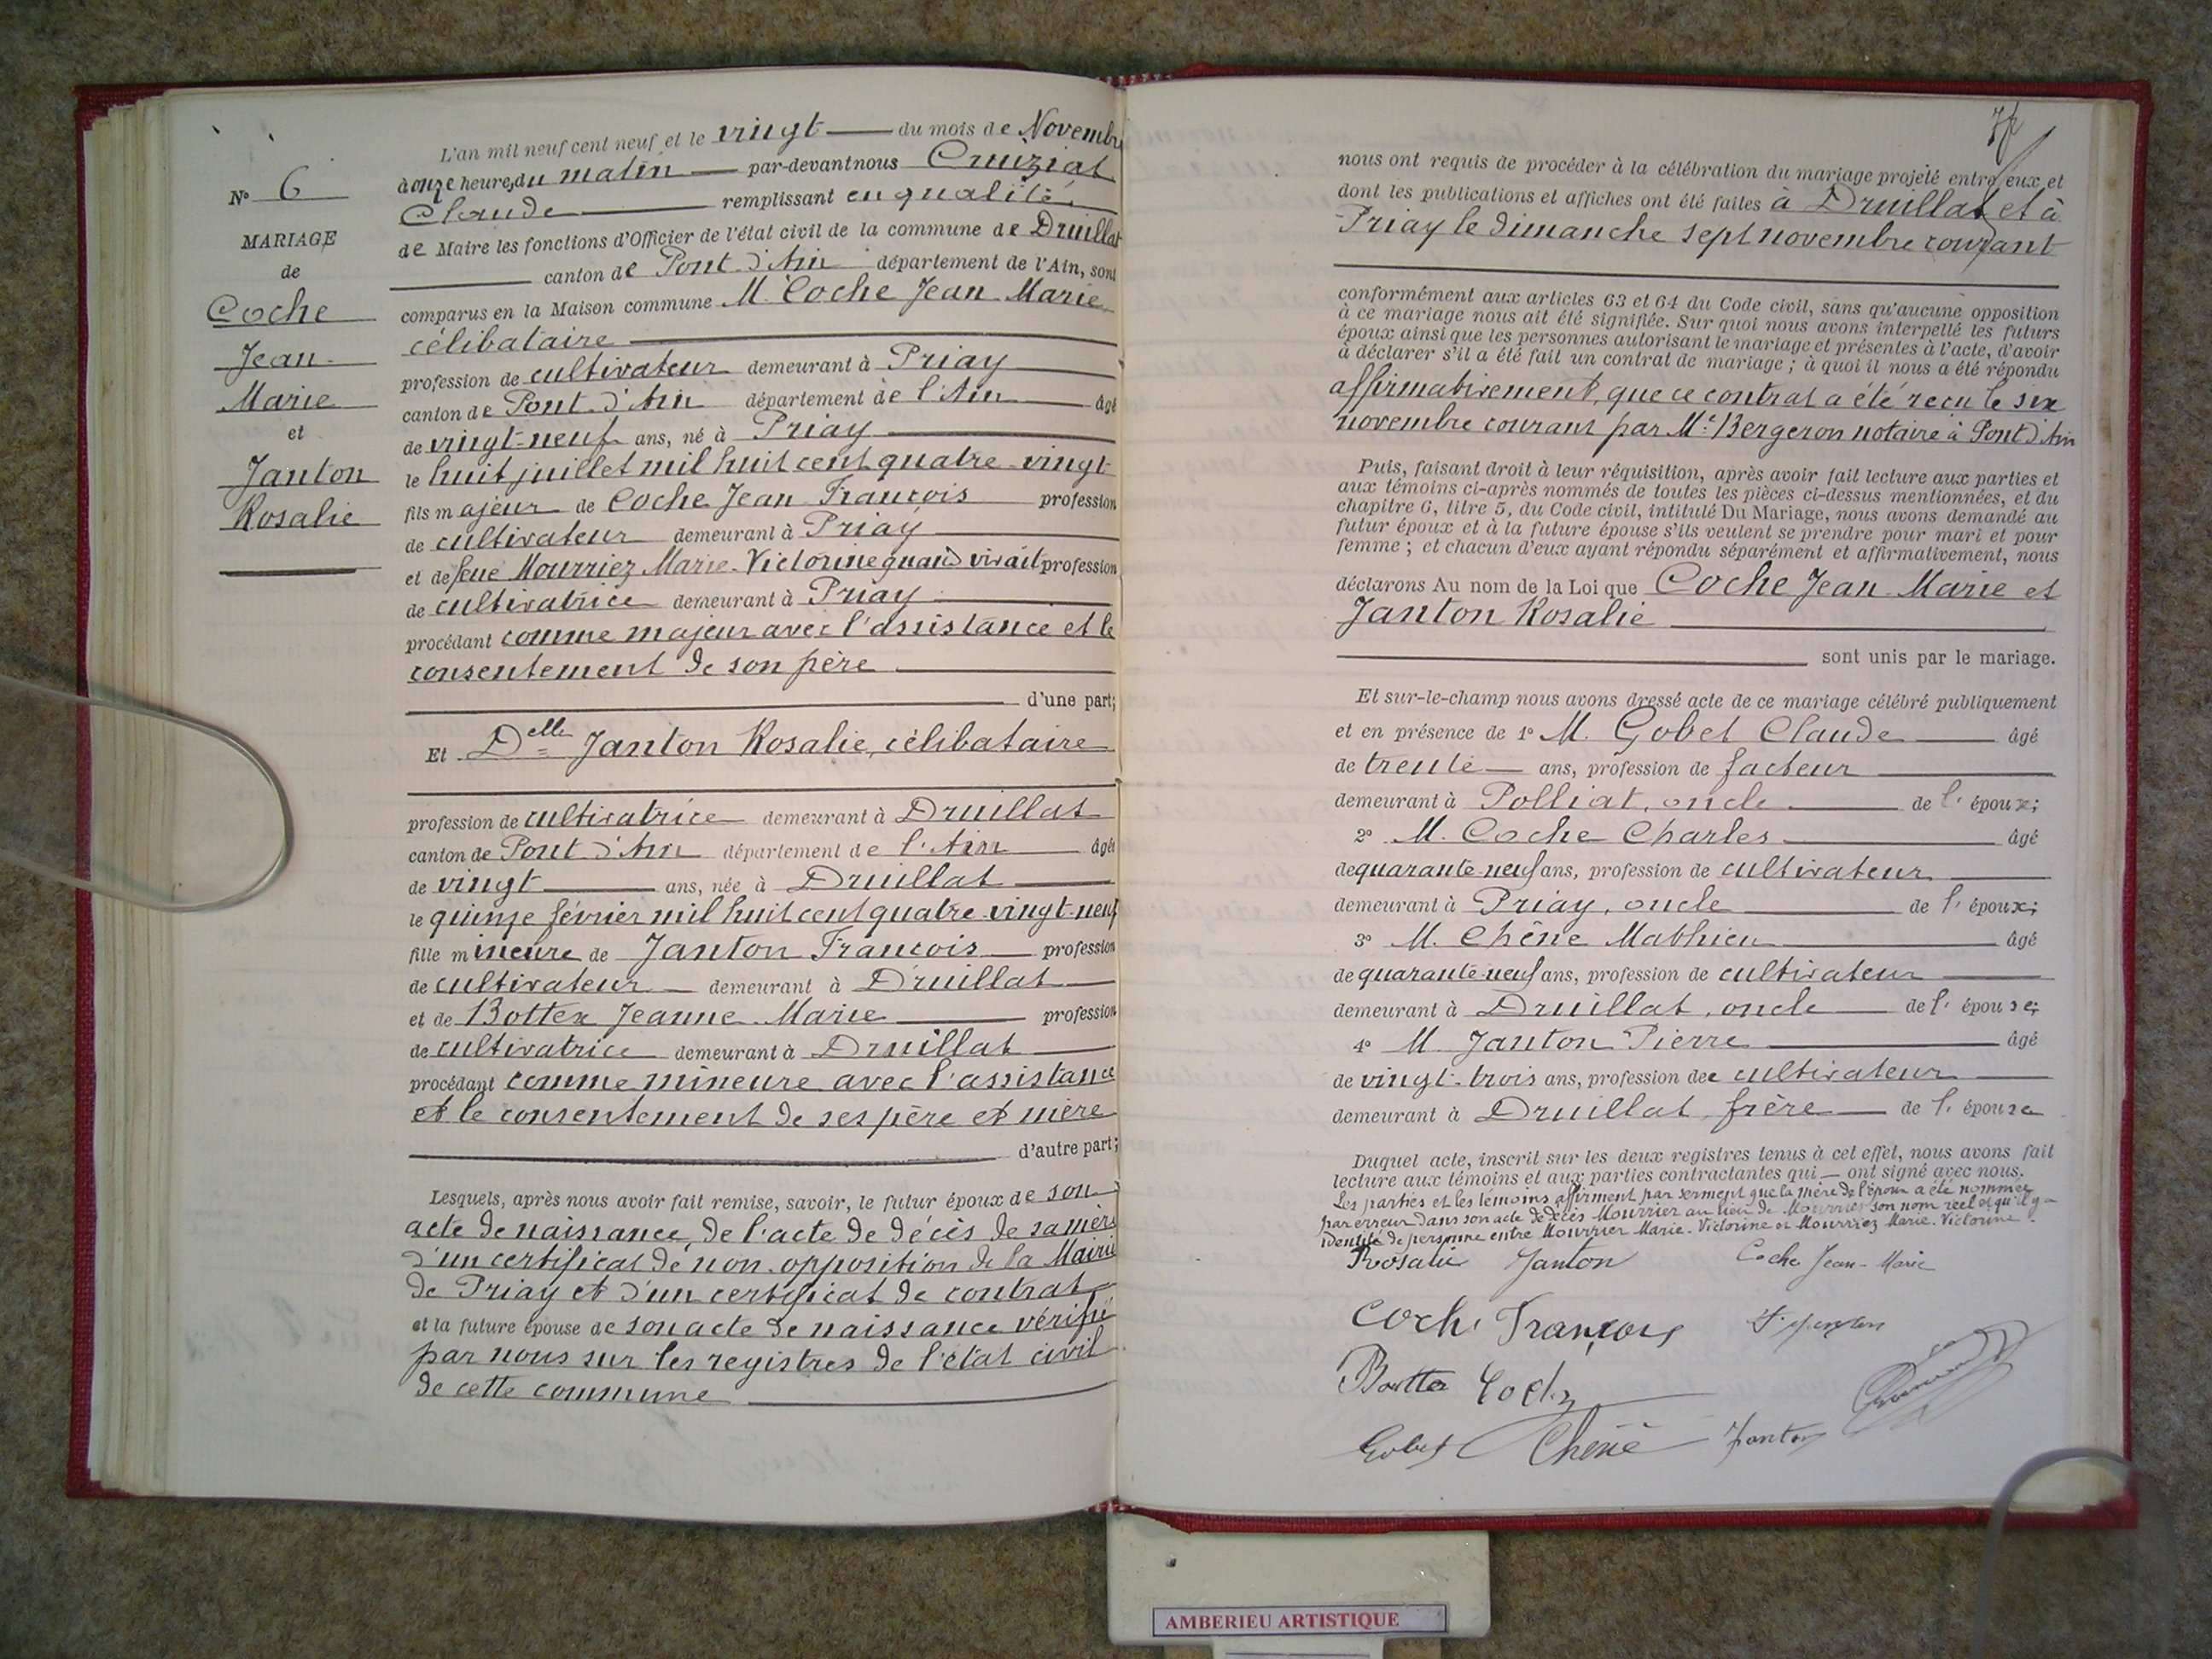 L'an mil neuf cent neuf et le vingt du mois de Novembre
à onze heures du matin par-devant nous Cruiziat
Claude remplissant en qualité
de Maire les fonctions d'Officier de l'état civil de la commune de Druillat
canton de Pont d'Ain département de l'Ain, sont
comparus en la Maison commune M. Coche Jean Marie
célibataire
profession de cultivateur demeurant à Priay
canton de Pont d'Ain département de l'Ain âgé
de vingt-neuf ans, né à Priay
le huit juillet mil huit cent quatre-vingt
fils majeur de Coche Jean François profession
de cultivateur demeurant à Priay
et de feue Mourriez Marie-Victorine quand vivait profession
de cultivatrice demeurant à Priay
procédant comme majeur avec l'assistance et le
consentement de son père
d'une part;
Et Delle Janton Rosalie, célibataire
profession de cultivatrice demeurant à Druillat
canton de Pont d'Ain département de l'Ain âgée
de vingt ans, née à Druillat
le quinze février mil huit cent quatre-vingt-neuf
fille mineure de Janton François profession
de cultivateur demeurant à Druillat
et de Bottex Jeanne-Marie profession
de cultivatrice demeurant à Druillat
procédant comme mineure avec l'assistance
et le consentement de ses père et mère
d'autre part;
Lesquels, après nous avoir fait remise, savoir, le futur époux de son
acte de naissance, de l'acte de décès de sa mère
d'un certificat de non-opposition de la Mairie
de Priay et d'un certificat de contrat
et la future épouse de son acte de naissance vérifié
par nous sur les registres de l'état civil
de cette commune
No 6
MARIAGE
de
Coche
Jean-
Marie
et
Janton
Rosalie
nous ont requis de procéder à la célébration du mariage projeté entre eux et
dont les publications et affiches ont été faites à Druillat et à
Priay le dimanche sept novembre courant
conformément aux articles 63 et 64 du Code civil, sans qu'aucune opposition
à ce mariage nous ait été signifiée. Sur quoi nous avons interpellé les futurs
époux ainsi que les personnes autorisant le mariage et présentes à l'acte, d'avoir
à déclarer s'il a été fait un contrat de mariage; à quoi il nous a été répondu
affirmativement, que ce contrat a été reçu le six
novembre courant par Me Bergeron notaire à Pont d'Ain
Puis, faisant droit à leur réquisition, après avoir fait lecture aux parties et
aux témoins ci-après nommés de toutes les pièces ci-dessus mentionnées, et du
chapitre 6, titre 5, du Code civil, intitulé Du Mariage, nous avons demandé au
futur époux et à la future épouse s'ils veulent se prendre pour mari et pour
femme; et chacun d'eux ayant répondu séparément et affirmativement, nous
déclarons Au nom de la Loi que Coche Jean-Marie et
Janton Rosalie
sont unis par le mariage.
Et sur-le-champ nous avons dressé acte de ce mariage célébré publiquement
et en présence de 1° M. Gobet Claude âgé
de trente ans, profession de facteur
demeurant à Polliat, oncle de l'époux;
2° M. Coche Charles âgé
de quarante-neuf ans, profession de cultivateur
demeurant à Priay, oncle de l'époux;
3° M. Chêne Mathieu âgé
de quarante-neuf ans, profession de cultivateur
demeurant à Druillat, oncle de l'épouse;
4° M. Janton Pierre âgé
de vingt-trois ans, profession dee cultivateur
demeurant à Druillat, frère de l'épouse
Duquel acte, inscrit sur les deux registres tenus à cet effet, nous avons fait
lecture aux témoins et aux parties contractantes qui ont signé avec nous.
Les parties et les témoins affirment par serment que la mère de l'époux a été nommée
par erreur dans son acte de décès Mourrier au lieu de Mourriez son nom réel et qu'il y a
identité de personne entre Mourrier Marie-Victorine et Mourriez Marie-Victorine.
Rosalie Janton Coche Jean-Marie
Coche François
Gobet Chêne Janton
AMBERIEU ARTISTIQUE